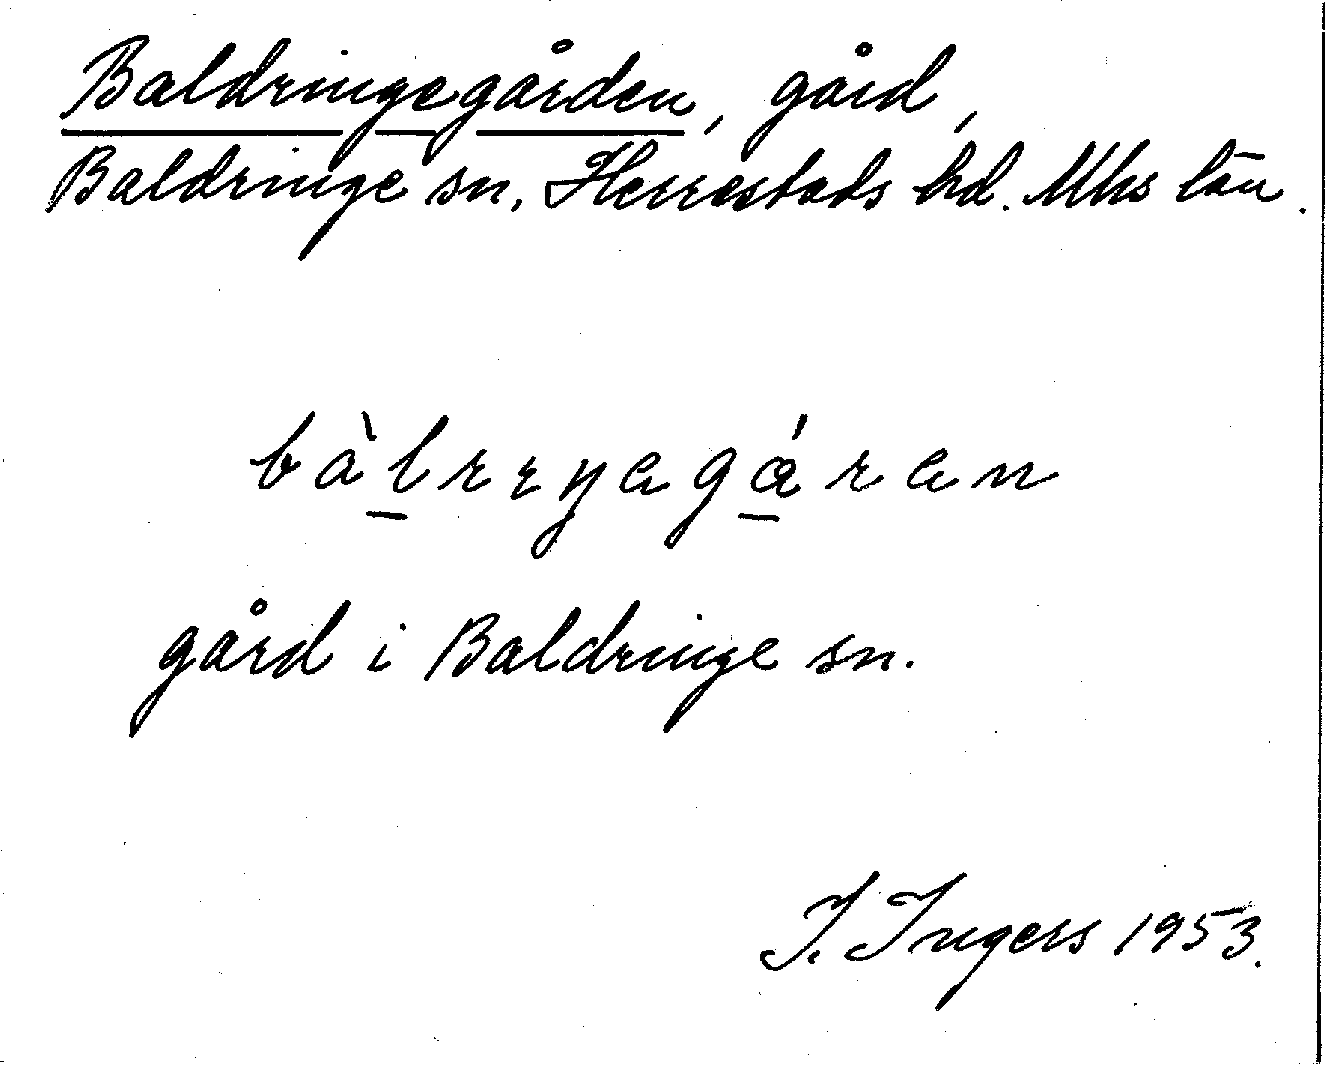 Baldringegården, gård,
Baldringe sn, Herrestads hd. Mhs län.
bàlrıŋagǻran
gård i Baldringe sn.
I. Ingers 1953.